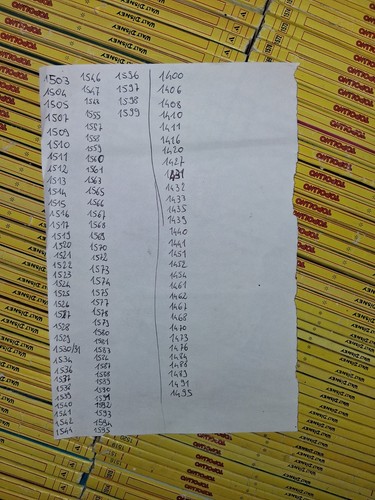 1503 1546 1596 1400
1504 1547 1597 1406
1505 1548 1598 1408
1507 1555 1599 1410
1509 1557 1411
1510 1558 1416
1511 1559 1420
1512 1560 1427
1513 1561 1431
1514 1563 1432
1515 1565 1433
1516 1566 1435
1517 1567 1439
1519 1568 1440
1520 1569 1441
1521 1570 1451
1522 1572 1452
1523 1573 1454
1524 1574 1461
1525 1575 1462
1526 1577 1467
1527 1578 1468
1528 1579 1470
1529 1580 1473
1530/31 1581 1476
1534 1583 1484
1536 1584 1486
1537 1587 1489
1538 1588 1491
1539 1589 1495
1540 1590
1541 1591
1542 1592
1544 1593
1594
1595
TOPOLINO
WALT DISNEY